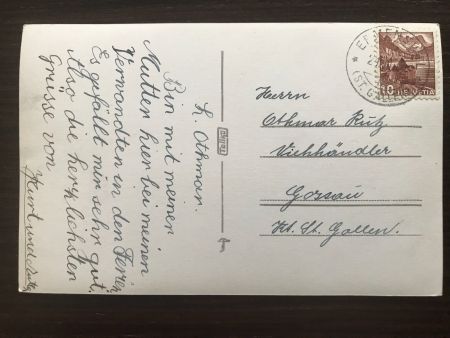 L. Othmar.
Bin mit meiner
Mutter hier bei meinen
Verwandten in den Ferien
Es gefällt mir sehr gut.
Also die herzlichsten
Grüsse von
Herrn
Othmar Rutz
Viehhändler
Gossau
Kt. St. Gallen.
(ST. GALLEN)
10 HELVETIA